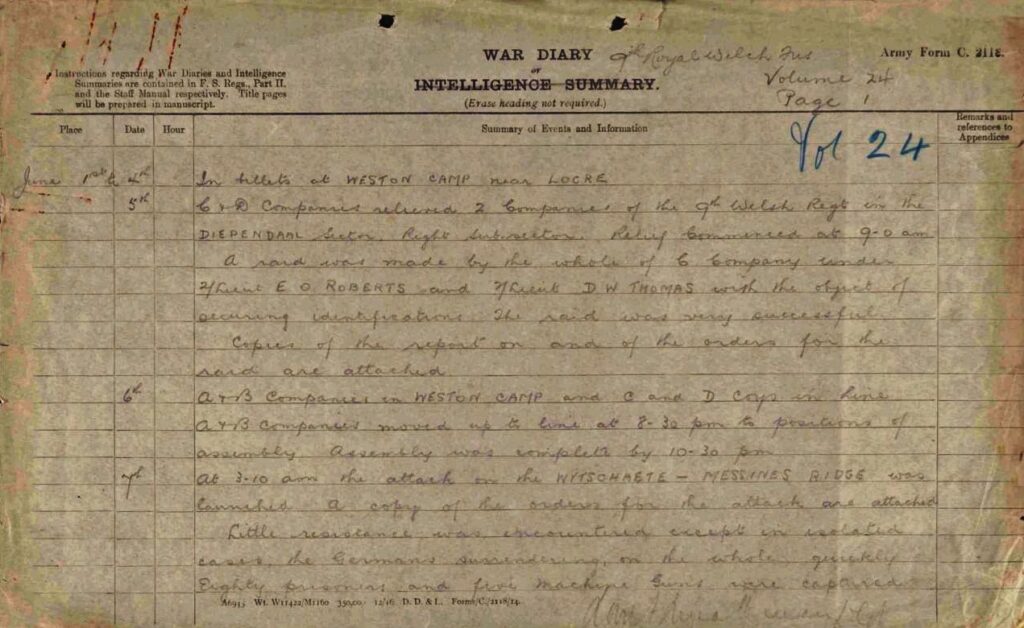 WAR DIARY
or
INTELLIGENCE SUMMARY.
(Erase heading not required.)
9th Royal Welch Fus
Volume 24
Page 1
Army Form C. 2118.
Instructions regarding War Diaries and Intelligence
Summaries are contained in F. S. Regs., Part II.
and the Staff Manual respectively. Title pages
will be prepared in manuscript.
Place Date Hour Summary of Events and Information Remarks and
references to
Appendices
Vol 24
June 1st to 4th In billets at WESTON CAMP near LOCRE
5th C & D Companies relieved 2 Companies of the 9th Welsh Regt in the
DIEPENDAAL Sector, Right Subsector. Relief Commenced at 9-0 am
A raid was made by the whole of C Company under
2/Lieut E O ROBERTS and 2/Lieut D W THOMAS with the object of
securing identifications. The raid was very successful.
Copies of the report on and of the orders for the
raid are attached
6th A & B Companies in WESTON CAMP and C and D Coys in line
A & B Companies moved up to line at 8-30 pm to positions of
assembly. Assembly was complete by 10-30 pm
7th At 3-10 am the attack on the WYTSCHAETE - MESSINES RIDGE was
launched. A copy of the orders for the attack are attached
Little resistance was encountered except in isolated
cases, the Germans surrendering, on the whole, quickly
Eighty prisoners and five Machine Guns were captured
A6945 Wt. W11422/M1160 350,000 12/16 D. D. & L. Forms/C./2118/14.